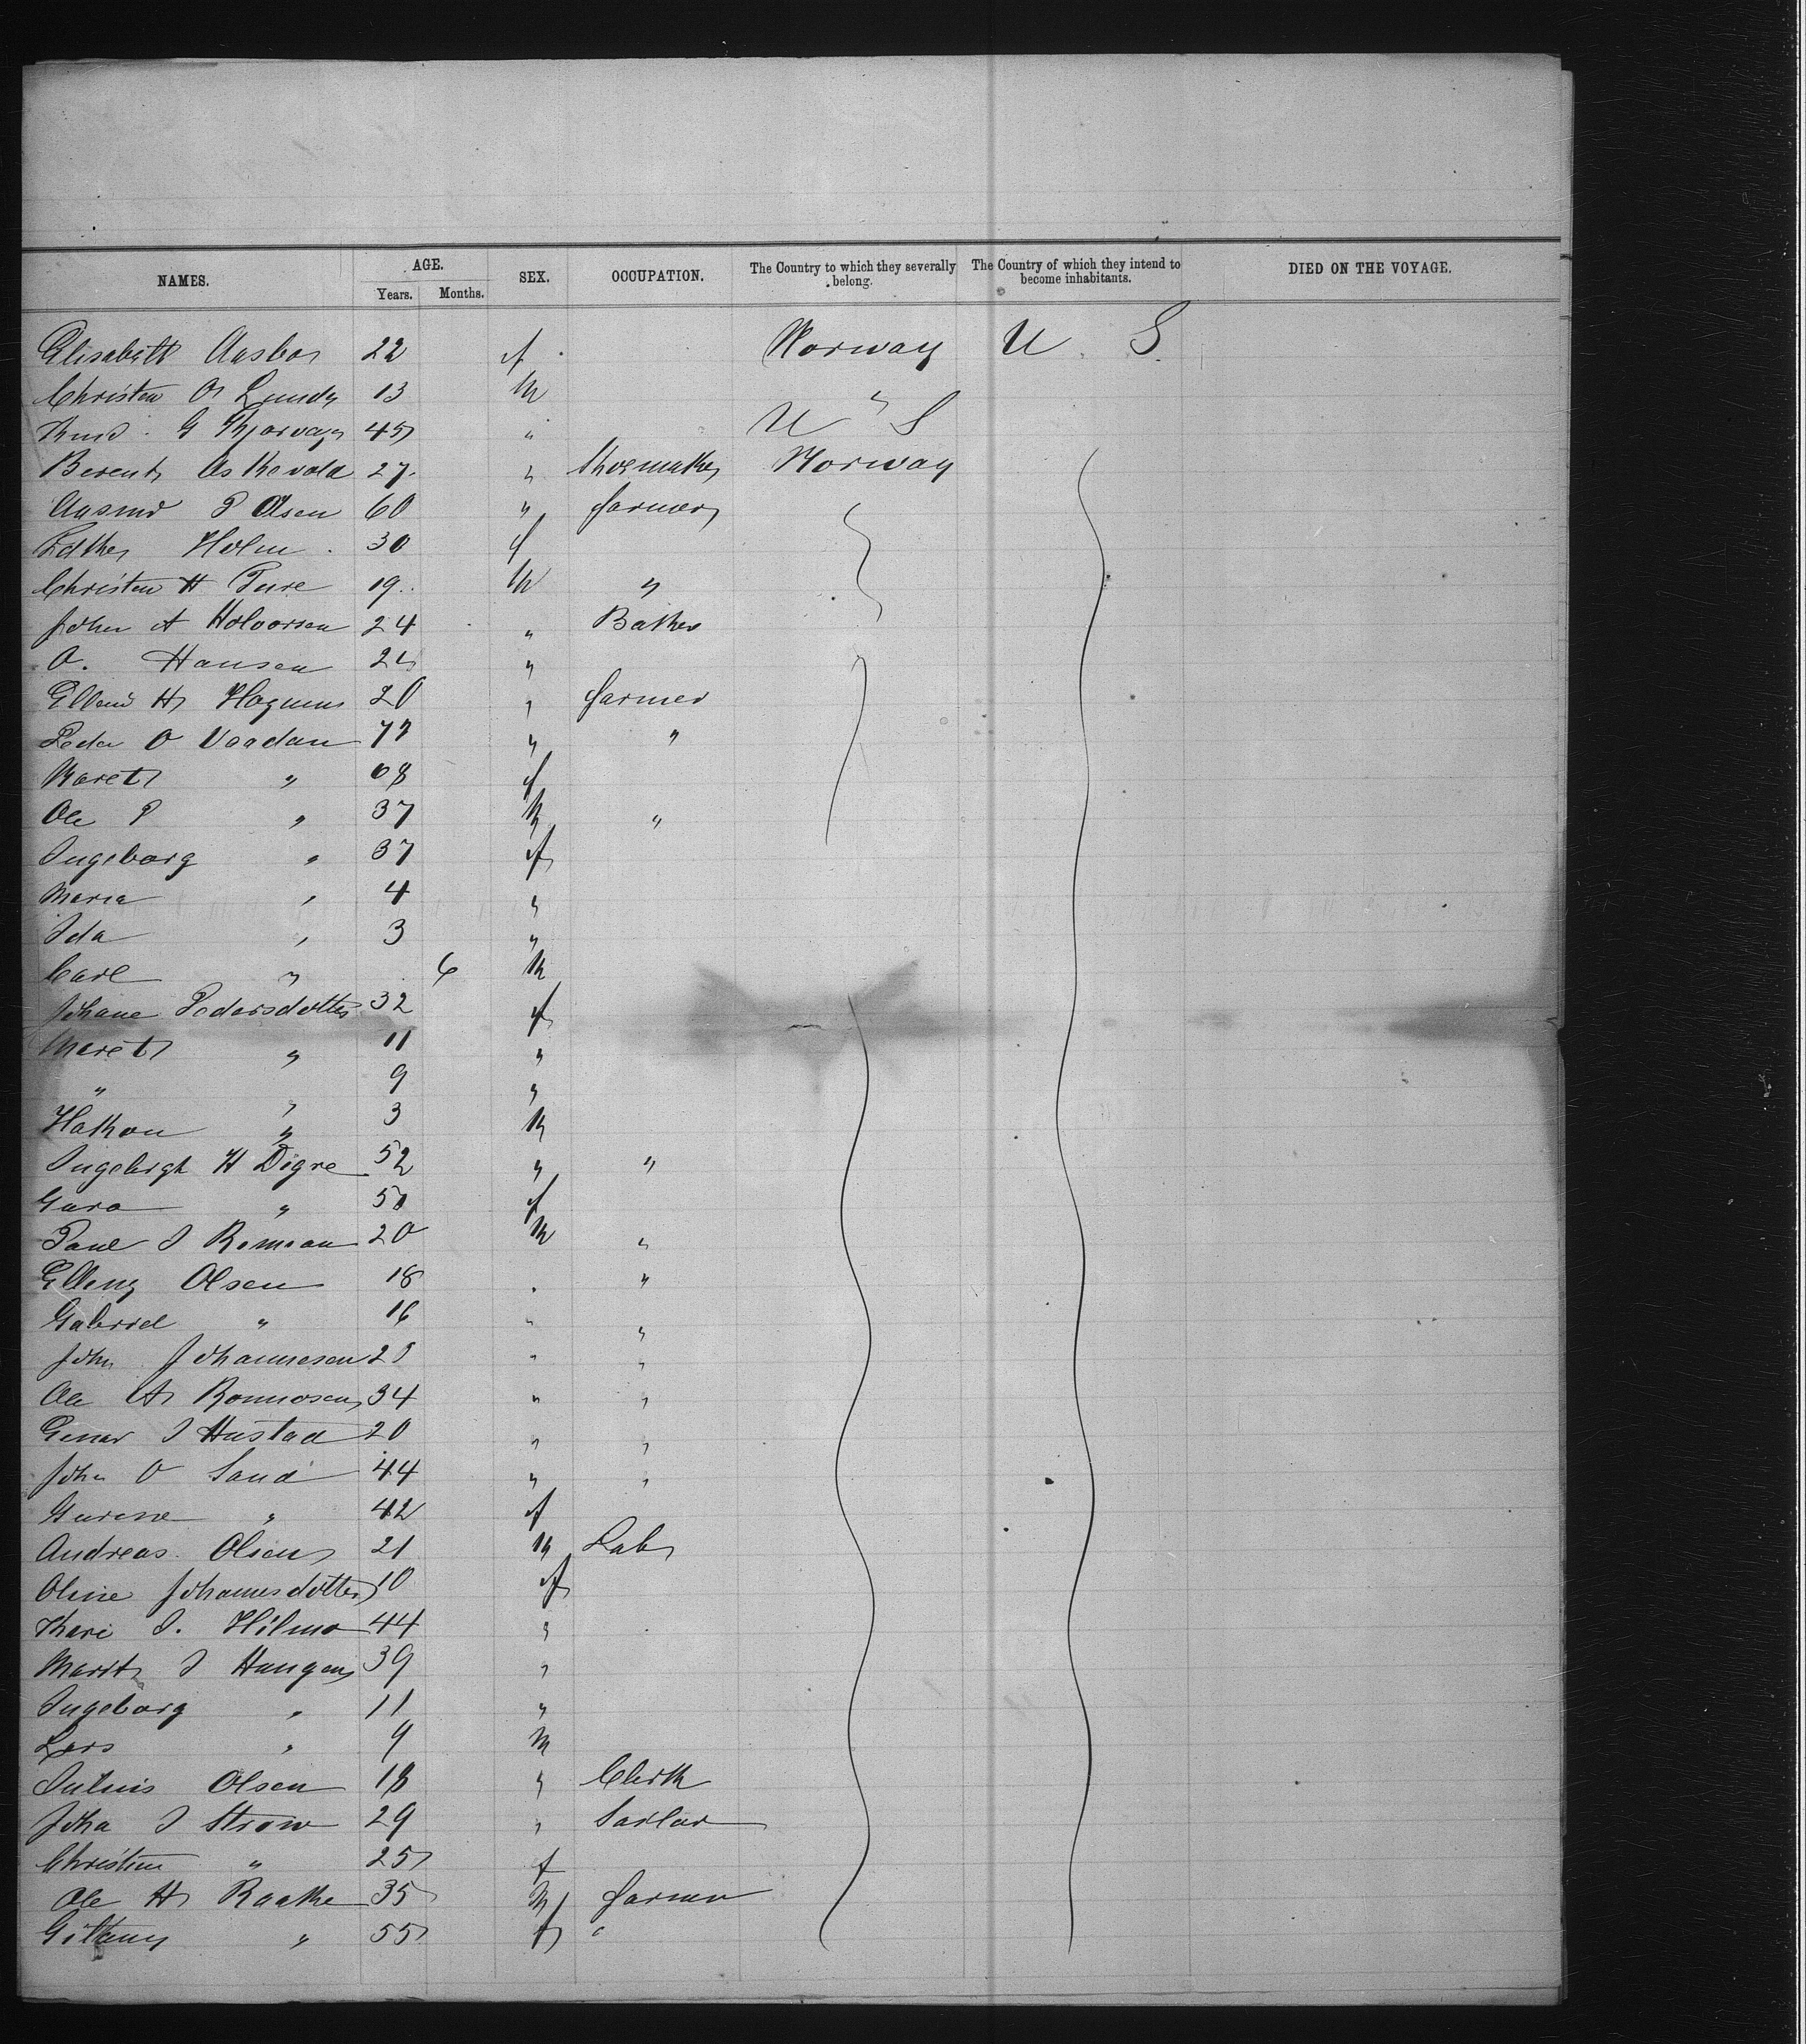 NAMES. AGE. SEX. OCCUPATION. The Country to which they severally belong. The Country of which they intend to become inhabitants. DIED ON THE VOYAGE.
Years. Months.
Elisabett Aasbo 22 f Norway U S
Christen O Lundy 13 M "
Knud G 45 " U S
Berent Askevold 27 " Shoemaker Norway
Aasmd P Olsen 60 " farmer
Holm 30 f
Christen H Ture 19 M "
John A Holvorsen 24 " Baker
O. Hansen 24 "
H 20 " farmer
Peder O Vaadan 77 " "
Maret " 68 f
Ole P " 37 M "
Ingeborg " 37 f
Maria " 4 "
Ida " 3 "
Carl " 6 M
Johane Pedersdotter 32 f
Maret " 11 "
" " 9 "
Hakon " 3 M
Ingebrigt H Digre 52 " "
Guro " 50 f
Paul J 20 M "
Elling Olsen 18 " "
Gabriel " 16 " "
John Johannesen 25 " "
Ole A 34 " "
Einar J Hustad 20 " "
John O Sand 44 " "
" 42 f
Andreas Olsen 21 M Lab
Oline Johannesdotter 10 f
Kari J. Hilmo 44 "
Marit J Haugen 39 "
Ingeborg " 11 "
Lars " 9 M
Julius Olsen 18 " Clerk
John J Strom 29 " Sailor
Christine " 25 f
Ole H Raake 35 M farmer
" 55 f "